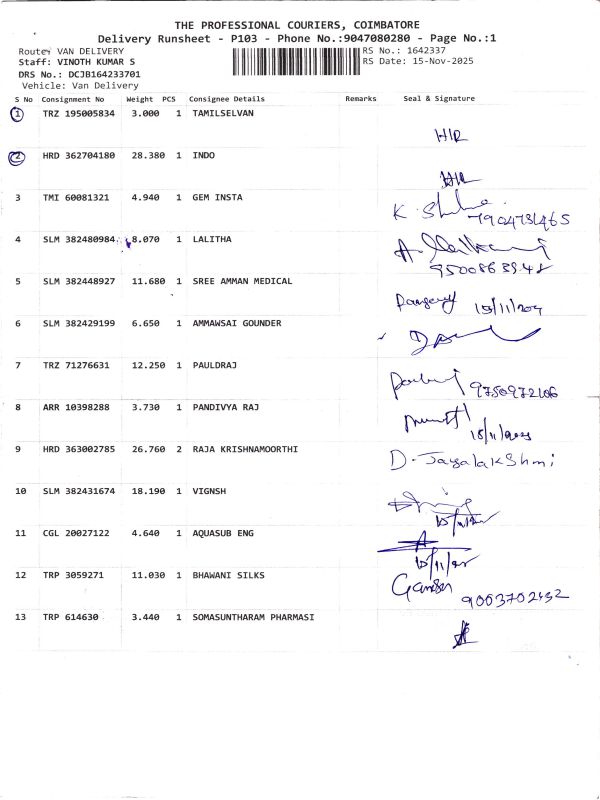 THE PROFESSIONAL COURIERS, COIMBATORE
Delivery Runsheet - P103 - Phone No.:9047080280 - Page No.:1
Route: VAN DELIVERY RS No.: 1642337
Staff: VINOTH KUMAR S RS Date: 15-Nov-2025
DRS No.: DCJB164233701
Vehicle: Van Delivery
S No Consignment No Weight PCS Consignee Details Remarks Seal & Signature
1 TRZ 195005834 3.000 1 TAMILSELVAN
HIR
2 HRD 362704180 28.380 1 INDO
HIR
3 TMI 60081321 4.940 1 GEM INSTA
K.
7904731465
4 SLM 382480984 8.070 1 LALITHA
9500863948
5 SLM 382448927 11.680 1 SREE AMMAN MEDICAL
6 SLM 382429199 6.650 1 AMMAWSAI GOUNDER
7 TRZ 71276631 12.250 1 PAULDRAJ
9750972106
8 ARR 10398288 3.730 1 PANDIVYA RAJ
9 HRD 363002785 26.760 2 RAJA KRISHNAMOORTHI
D. Jayalakshmi
10 SLM 382431674 18.190 1 VIGNSH
11 CGL 20027122 4.640 1 AQUASUB ENG
12 TRP 3059271 11.030 1 BHAWANI SILKS
Ganesh
9003702432
13 TRP 614630 3.440 1 SOMASUNTHARAM PHARMASI